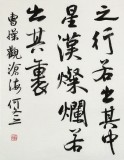 之行若出其中
星漢燦爛若
出其裏
曹操觀滄海何三